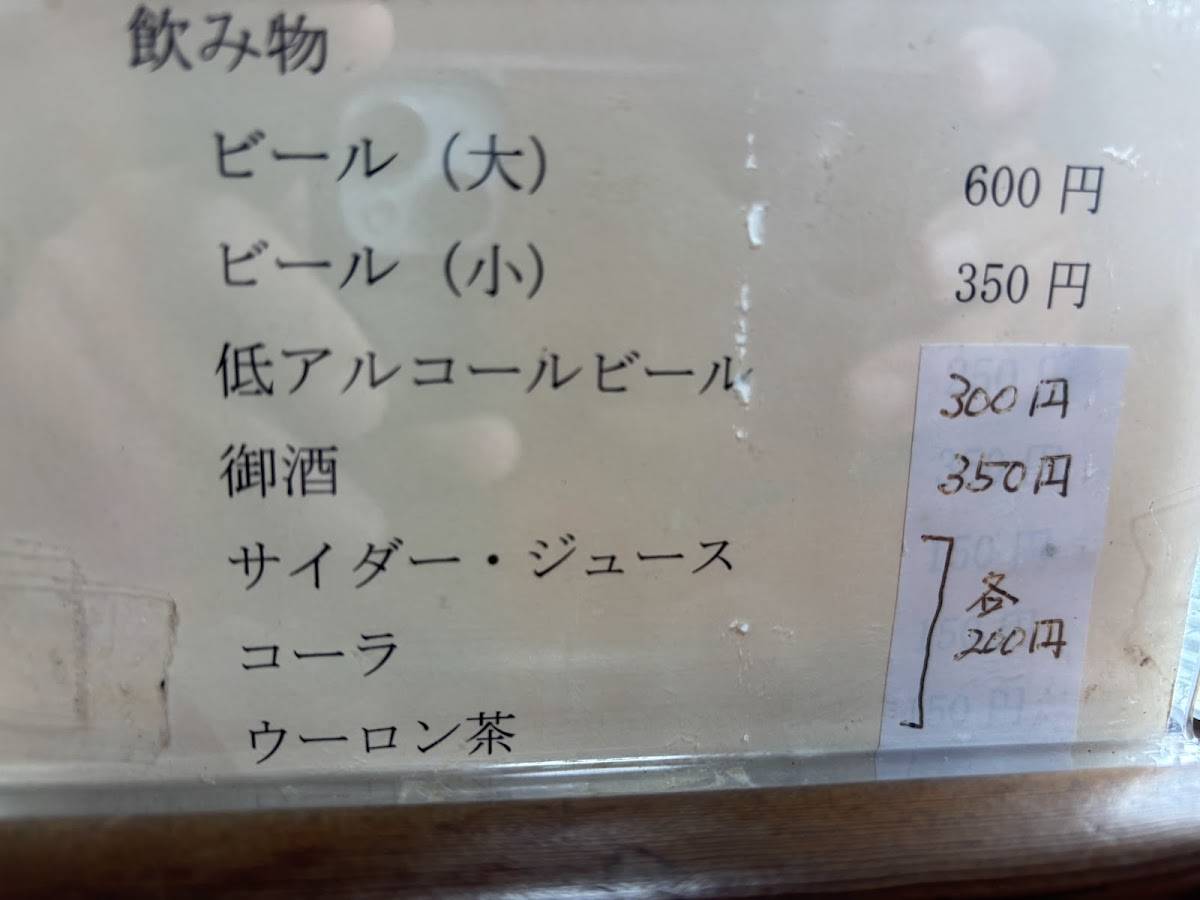 飲み物
ビール（大） 600円
ビール（小） 350円
低アルコールビール 300円
御酒 350円
サイダー・ジュース
コーラ 各200円
ウーロン茶